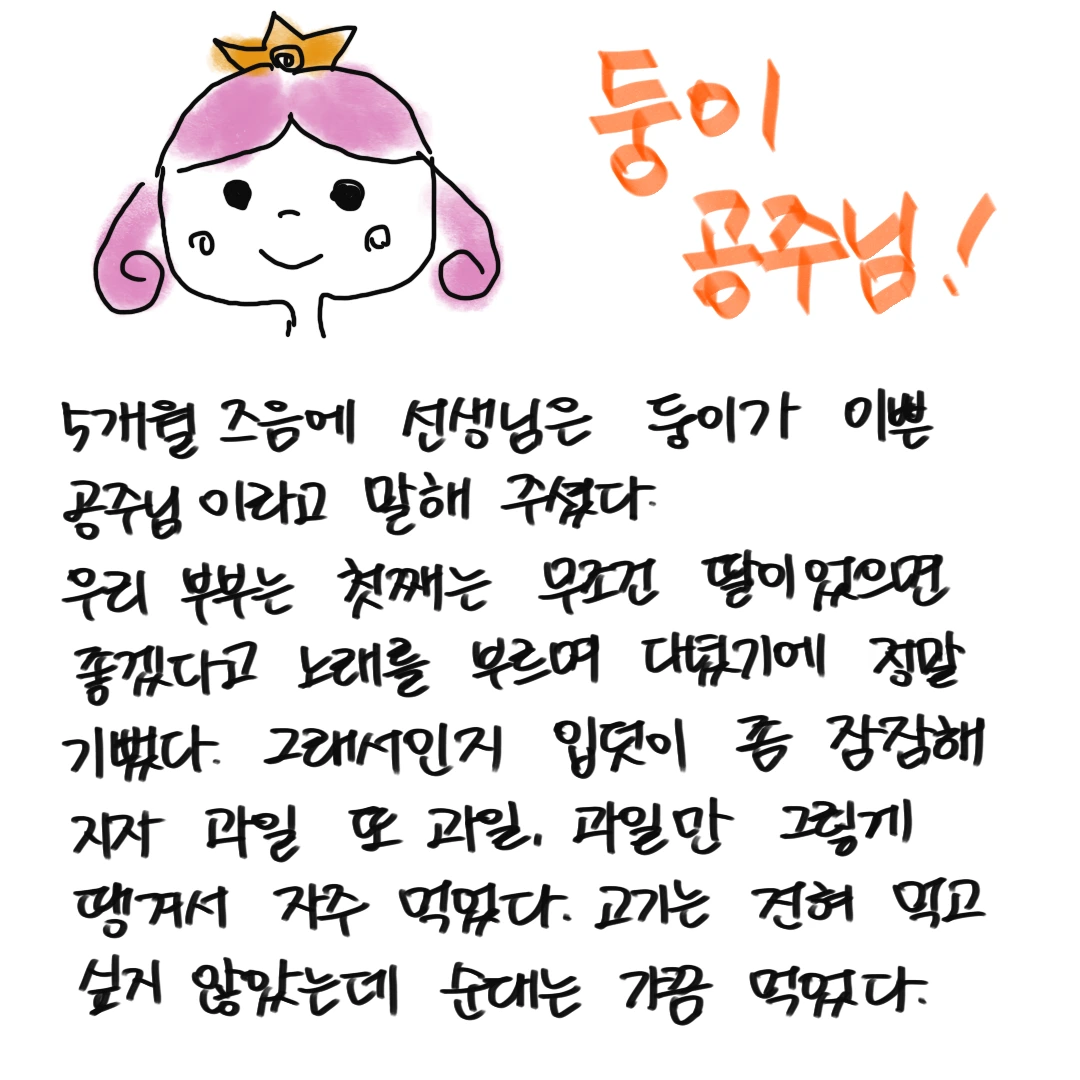 둥이
공주님!
5개월 즈음에 선생님은 둥이가 이쁜
공주님 이라고 말해 주셨다.
우리 부부는 첫째는 무조건 딸이었으면
좋겠다고 노래를 부르며 다녔기에 정말
기뻤다. 그래서인지 입덧이 좀 잠잠해
지자 과일 또 과일, 과일만 그렇게
땡겨서 자주 먹었다. 고기는 전혀 먹고
싶지 않았는데 순대는 가끔 먹었다.